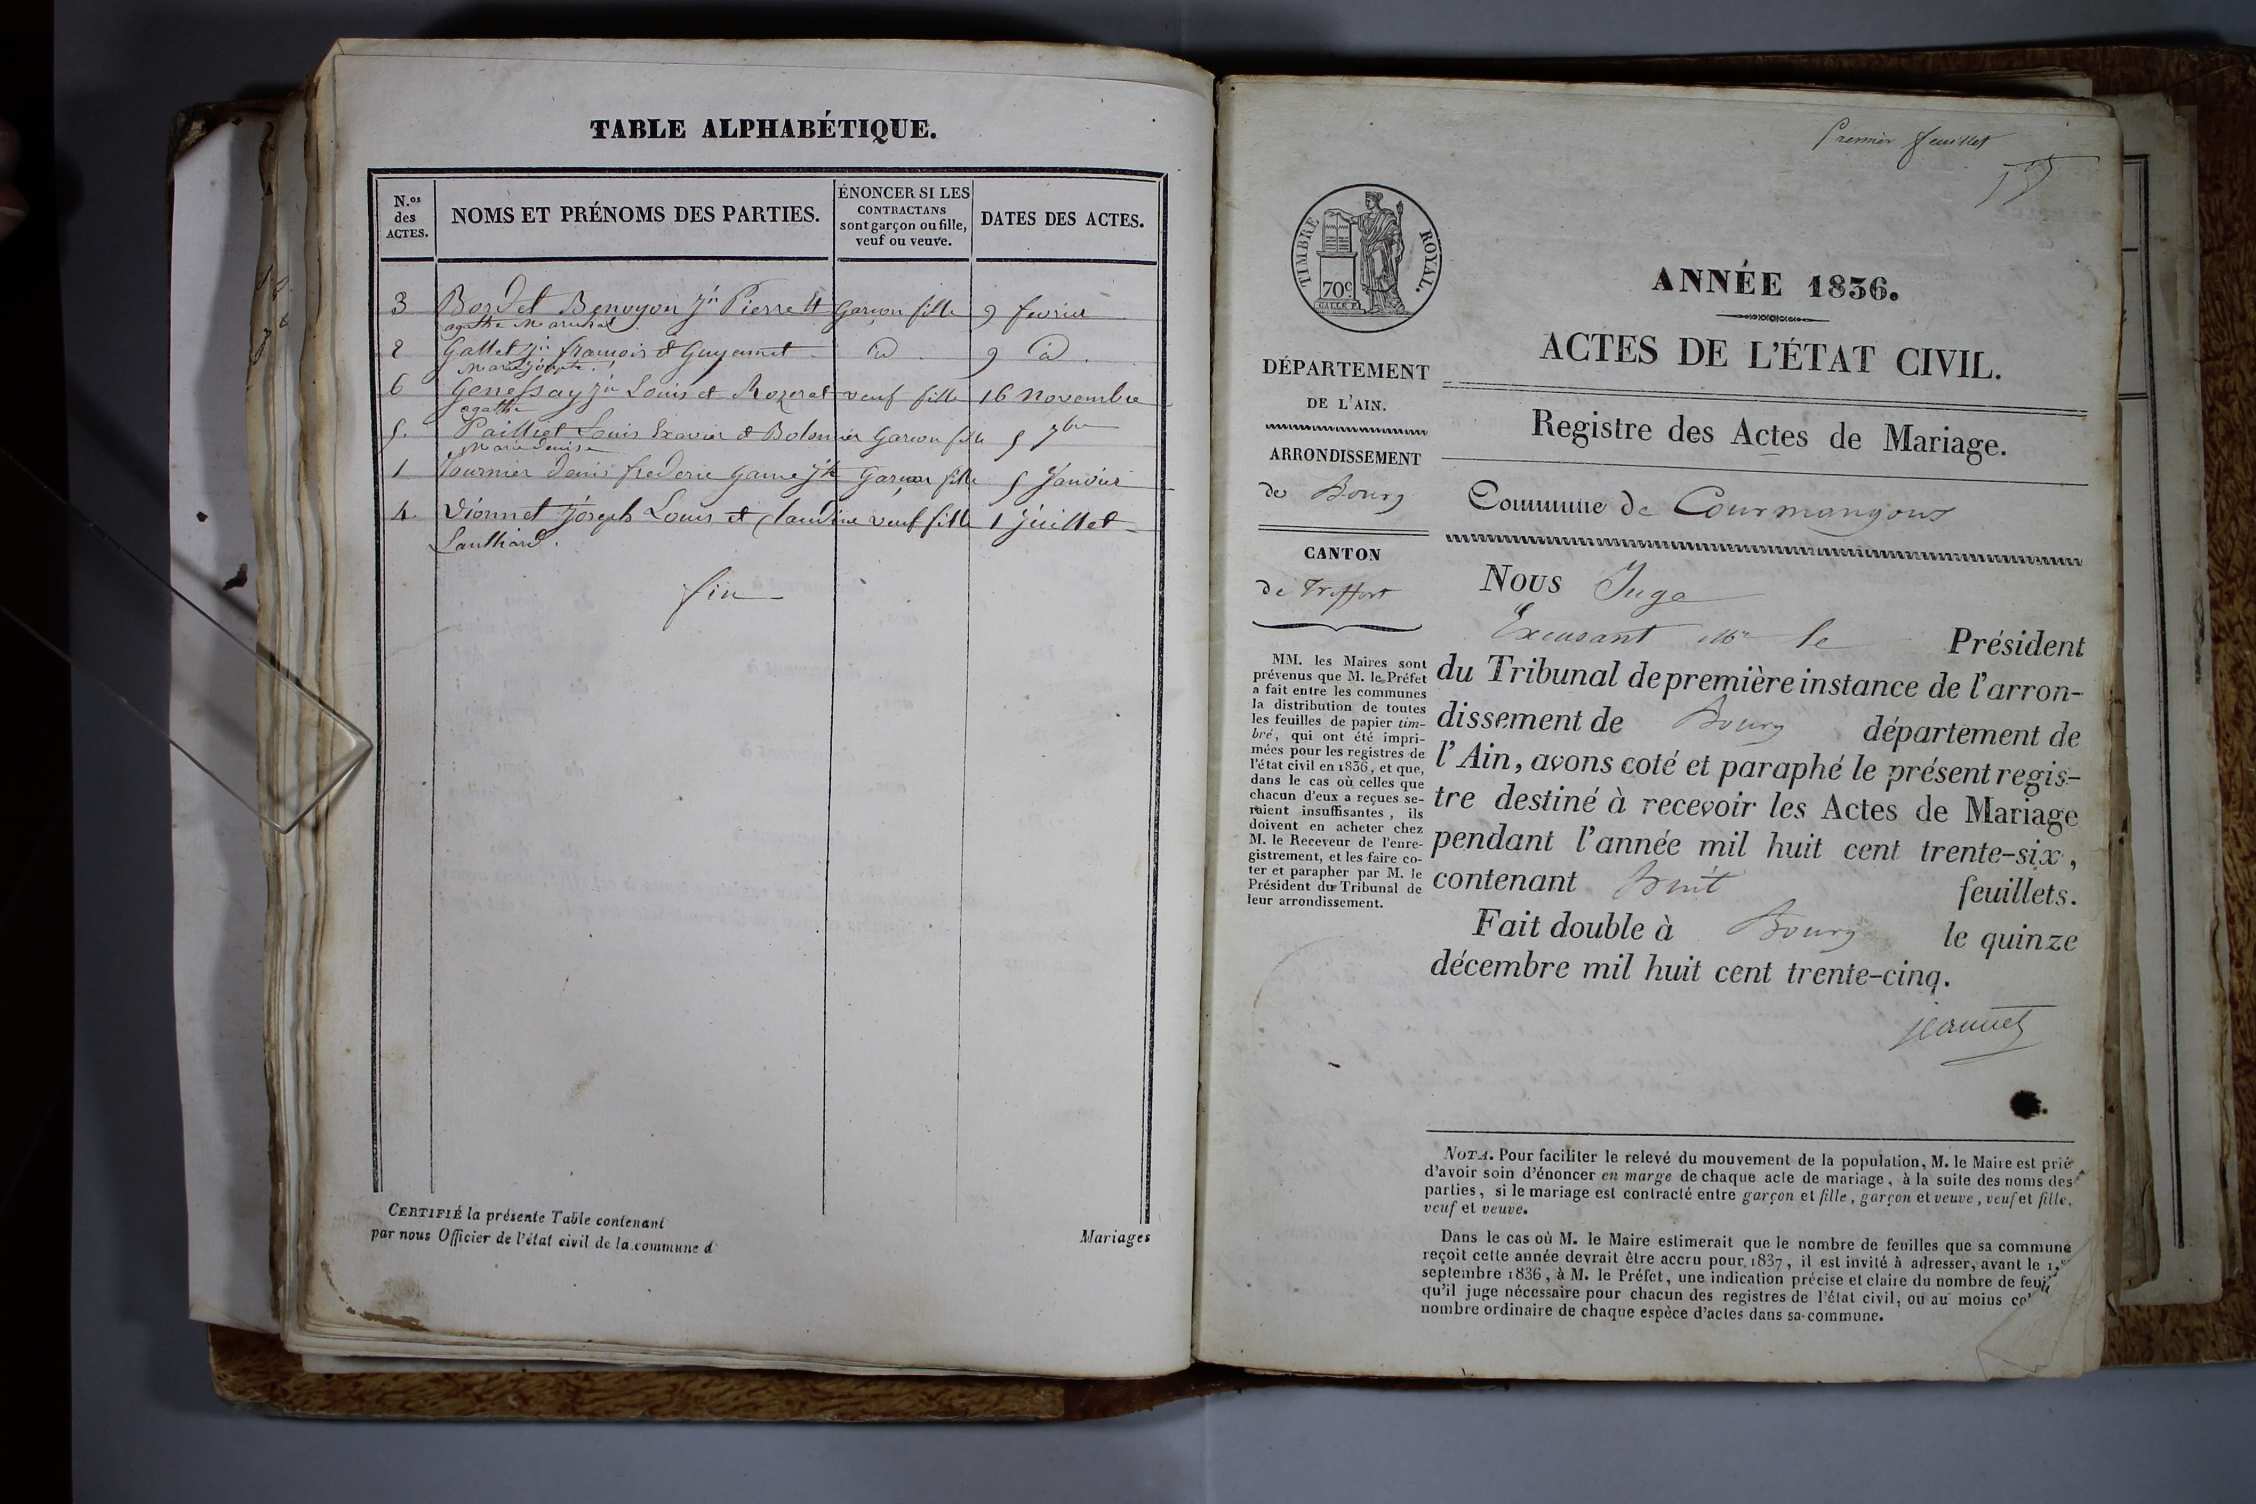 TABLE ALPHABÉTIQUE.
N.os des ACTES.
NOMS ET PRÉNOMS DES PARTIES.
ÉNONCER SI LES
CONTRACTANS
sont garçon ou fille,
veuf ou veuve.
DATES DES ACTES.
3 Bordet Benoyon Jn Pierre et garçon fille 9 fevrier
agathe Marechal
2 Gallet Jn françois et Guyennet id 9 id.
Marie Josephte
6 Genessay Jn Louis et Rozerat veuf fille 16 Novembre
agathe
5. Pailliet Louis Exavier et Bolomier Garçon fille 5 7bre
Marie denise
1 Tournier denis frederic game garçon fille 5 Janvier
4. Vionnet Joseph Louis et Claudine veuf fille 1 Juillet
Laulhard.
fin
CERTIFIÉ la présente Table contenant
Mariages
par nous Officier de l'état civil de la commune d
Premier feuillet
TIMBRE ROYAL.
70c
ANNÉE 1836.
ACTES DE L'ÉTAT CIVIL.
Registre des Actes de Mariage.
Commune de Courmangoux
DÉPARTEMENT
DE L'AIN.
ARRONDISSEMENT
de Bourg
CANTON
de Treffort
MM. les Maires sont
prévenus que M. le Préfet
a fait entre les communes
la distribution de toutes
les feuilles de papier tim-
bré, qui ont été impri-
mées pour les registres de
l'état civil en 1836, et que,
dans le cas où celles que
chacun d'eux a reçues se-
raient insuffisantes, ils
doivent en acheter chez
M. le Receveur de l'enre-
gistrement, et les faire co-
ter et parapher par M. le
Président du Tribunal de
leur arrondissement.
Nous Juge
Excusant Mr le Président
du Tribunal de première instance de l'arron-
dissement de Bourg département de
l'Ain, avons coté et paraphé le présent regis-
tre destiné à recevoir les Actes de Mariage
pendant l'année mil huit cent trente-six,
contenant huit feuillets.
Fait double à Bourg le quinze
décembre mil huit cent trente-cinq.
Jeannet
NOTA. Pour faciliter le relevé du mouvement de la population, M. le Maire est prié
d'avoir soin d'énoncer en marge de chaque acte de mariage, à la suite des noms des
parties, si le mariage est contracté entre garçon et fille, garçon et veuve, veuf et fille,
veuf et veuve.
Dans le cas où M. le Maire estimerait que le nombre de feuilles que sa commune
reçoit cette année devrait être accru pour 1837, il est invité à adresser, avant le 1.er
septembre 1836, à M. le Préfet, une indication précise et claire du nombre de
qu'il juge nécessaire pour chacun des registres de l'état civil, ou au moins
nombre ordinaire de chaque espèce d'actes dans sa commune.